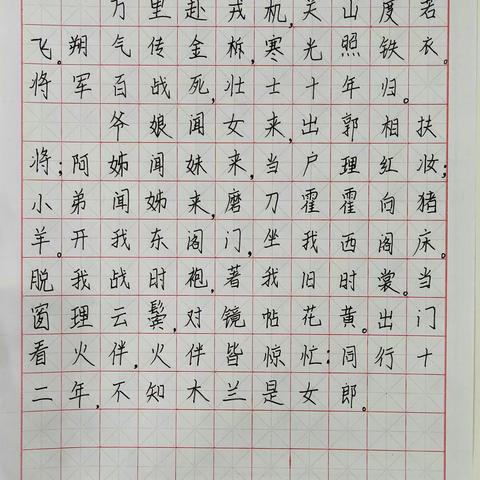 万里赴戎机,关山度若
飞。朔气传金柝,寒光照铁衣。
将军百战死,壮士十年归。
爷娘闻女来,出郭相扶
将;阿姊闻妹来,当户理红妆;
小弟闻姊来,磨刀霍霍向猪
羊。开我东阁门,坐我西阁床。
脱我战时袍,著我旧时裳。当
窗理云鬓,对镜帖花黄。出门
看火伴,火伴皆惊忙:同行十
二年,不知木兰是女郎。